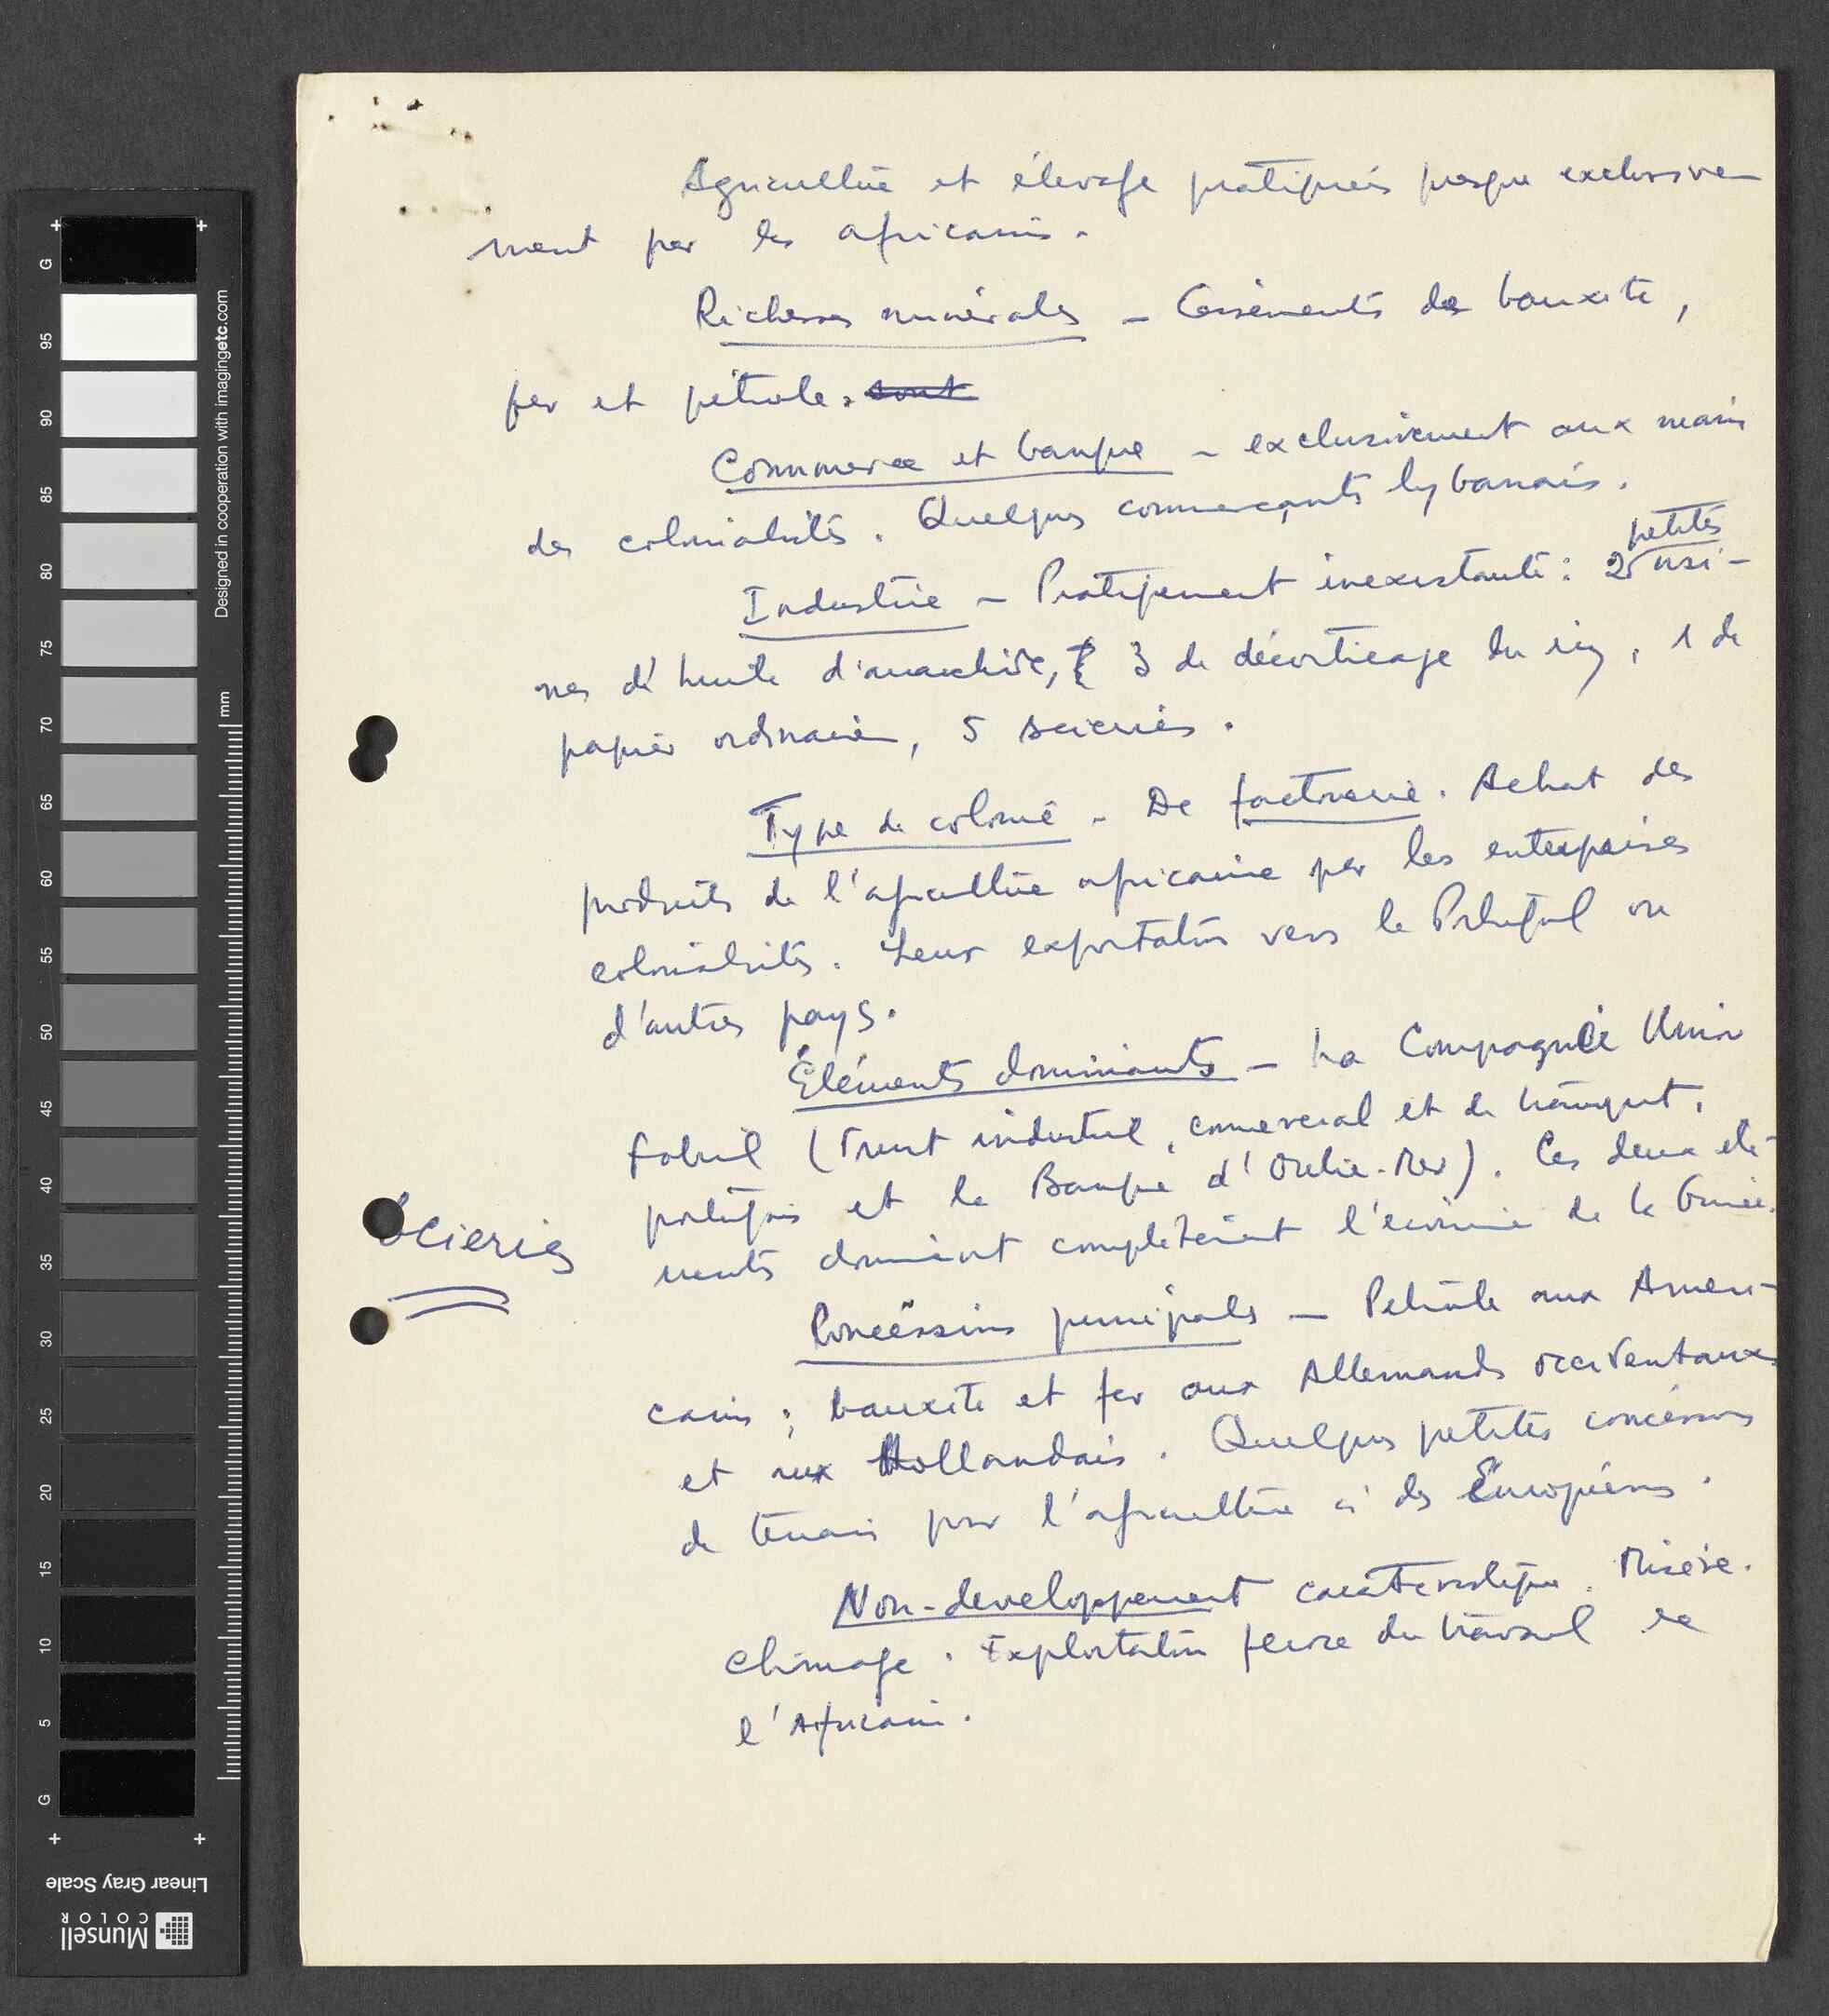 Agriculture et élevage pratiqués presque exclusive-
ment par les africains.
Richesses minérales - Gisements de bauxite,
fer et pétrole. sont
Commerce et banque - exclusivement aux mains
des colonialistes. Quelques commerçants lybanais.
petites
Industrie - Pratiquement inexistante: 2 usi-
nes d'huile d'arachide, 3 de décorticage du riz, 1 de
papier ordinaire, 5 scieries.
Type de colonie - De factorerie. Achat des
produits de l'agriculture africaine par les entreprises
colonialistes. Leur exportation vers le Portugal ou
d'autres pays.
Éléments dominants - La Compagnie União
Fabril (Trust industriel, comercial et de transport,
portugais et la Banque d'Outre-Mer). Ces deux élé-
ments dominent complètement l'économie de la Guinée.
Scieries
Concéssions principales - Pétrole aux Améri-
cains; bauxite et fer aux Allemands occidentaux
et aux Hollandais. Quelques petites concéssions
de terrain pour l'agriculture à des Européens.
Non-developpement caractéristique. Misère.
Chômage. Exploitation féroce du travail de
l'Africain.
G
95
90
85
80
75
70
65
60
55
50
45
40
35
30
25
20
15
10
5
G
mm
Designed in cooperation with imagingetc.com
Linear Gray Scale
Munsell
COLOR